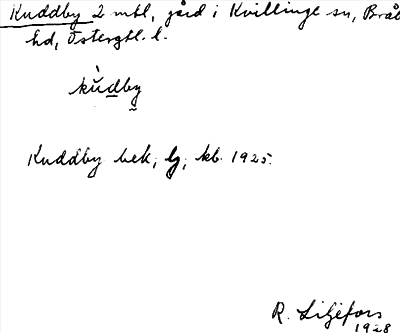 Kuddby 2 mtl, gård i Kvillinge sn, Bråb
hd, Östergtl. l.
kùdby
Kuddby bek, lj, kb. 1925.
R. Liljefors
1928